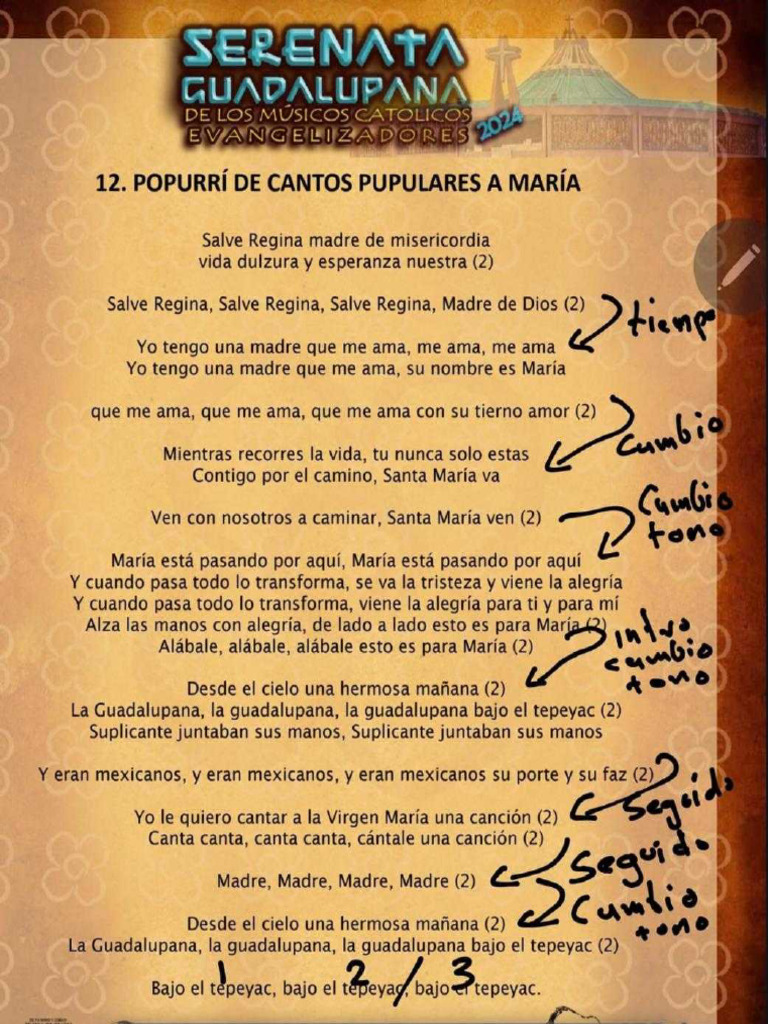 SERENATA
GUADALUPANA
DE LOS MÚSICOS CATOLICOS
EVANGELIZADORES 2024
12. POPURRÍ DE CANTOS PUPULARES A MARÍA
Salve Regina madre de misericordia
vida dulzura y esperanza nuestra (2)
Salve Regina, Salve Regina, Salve Regina, Madre de Dios (2)
tiempo
Yo tengo una madre que me ama, me ama, me ama
Yo tengo una madre que me ama, su nombre es María
que me ama, que me ama, que me ama con su tierno amor (2)
Cumbio
Mientras recorres la vida, tu nunca solo estas
Contigo por el camino, Santa María va
Ven con nosotros a caminar, Santa María ven (2)
Cumbio
tono
María está pasando por aquí, María está pasando por aquí
Y cuando pasa todo lo transforma, se va la tristeza y viene la alegría
Y cuando pasa todo lo transforma, viene la alegría para ti y para mí
Alza las manos con alegría, de lado a lado esto es para María (2)
Alábale, alábale, alábale esto es para María (2)
Intro
cumbio
tono
Desde el cielo una hermosa mañana (2)
La Guadalupana, la guadalupana, la guadalupana bajo el tepeyac (2)
Suplicante juntaban sus manos, Suplicante juntaban sus manos
Y eran mexicanos, y eran mexicanos, y eran mexicanos su porte y su faz (2)
Seguido
Yo le quiero cantar a la Virgen María una canción (2)
Canta canta, canta canta, cántale una canción (2)
Seguido
Madre, Madre, Madre, Madre (2)
Cumbio
tono
Desde el cielo una hermosa mañana (2)
La Guadalupana, la guadalupana, la guadalupana bajo el tepeyac (2)
1 2 / 3
Bajo el tepeyac, bajo el tepeyac, bajo el tepeyac.